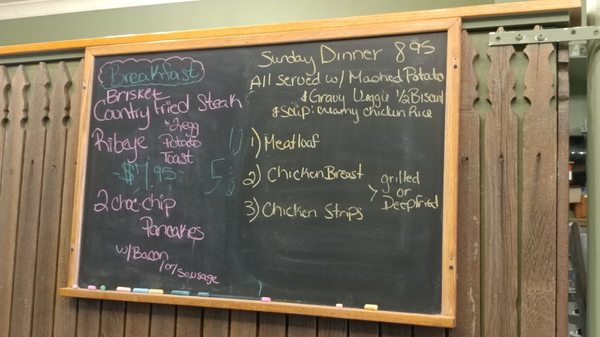 Breakfast
Brisket
Country Fried Steak
+ 2 egg
Ribeye Potato
Toast
$7.95
2 choc-chip
Pancakes
w/ Bacon
/or/ Sausage
Sunday Dinner 895
All served w/ Mashed Potato
& Gravy Veggie 1/2 Biscuit
& Soup: creamy chicken Rice
1) Meatloaf
2) Chicken Breast
3) Chicken Strips
> grilled
or
Deepfried